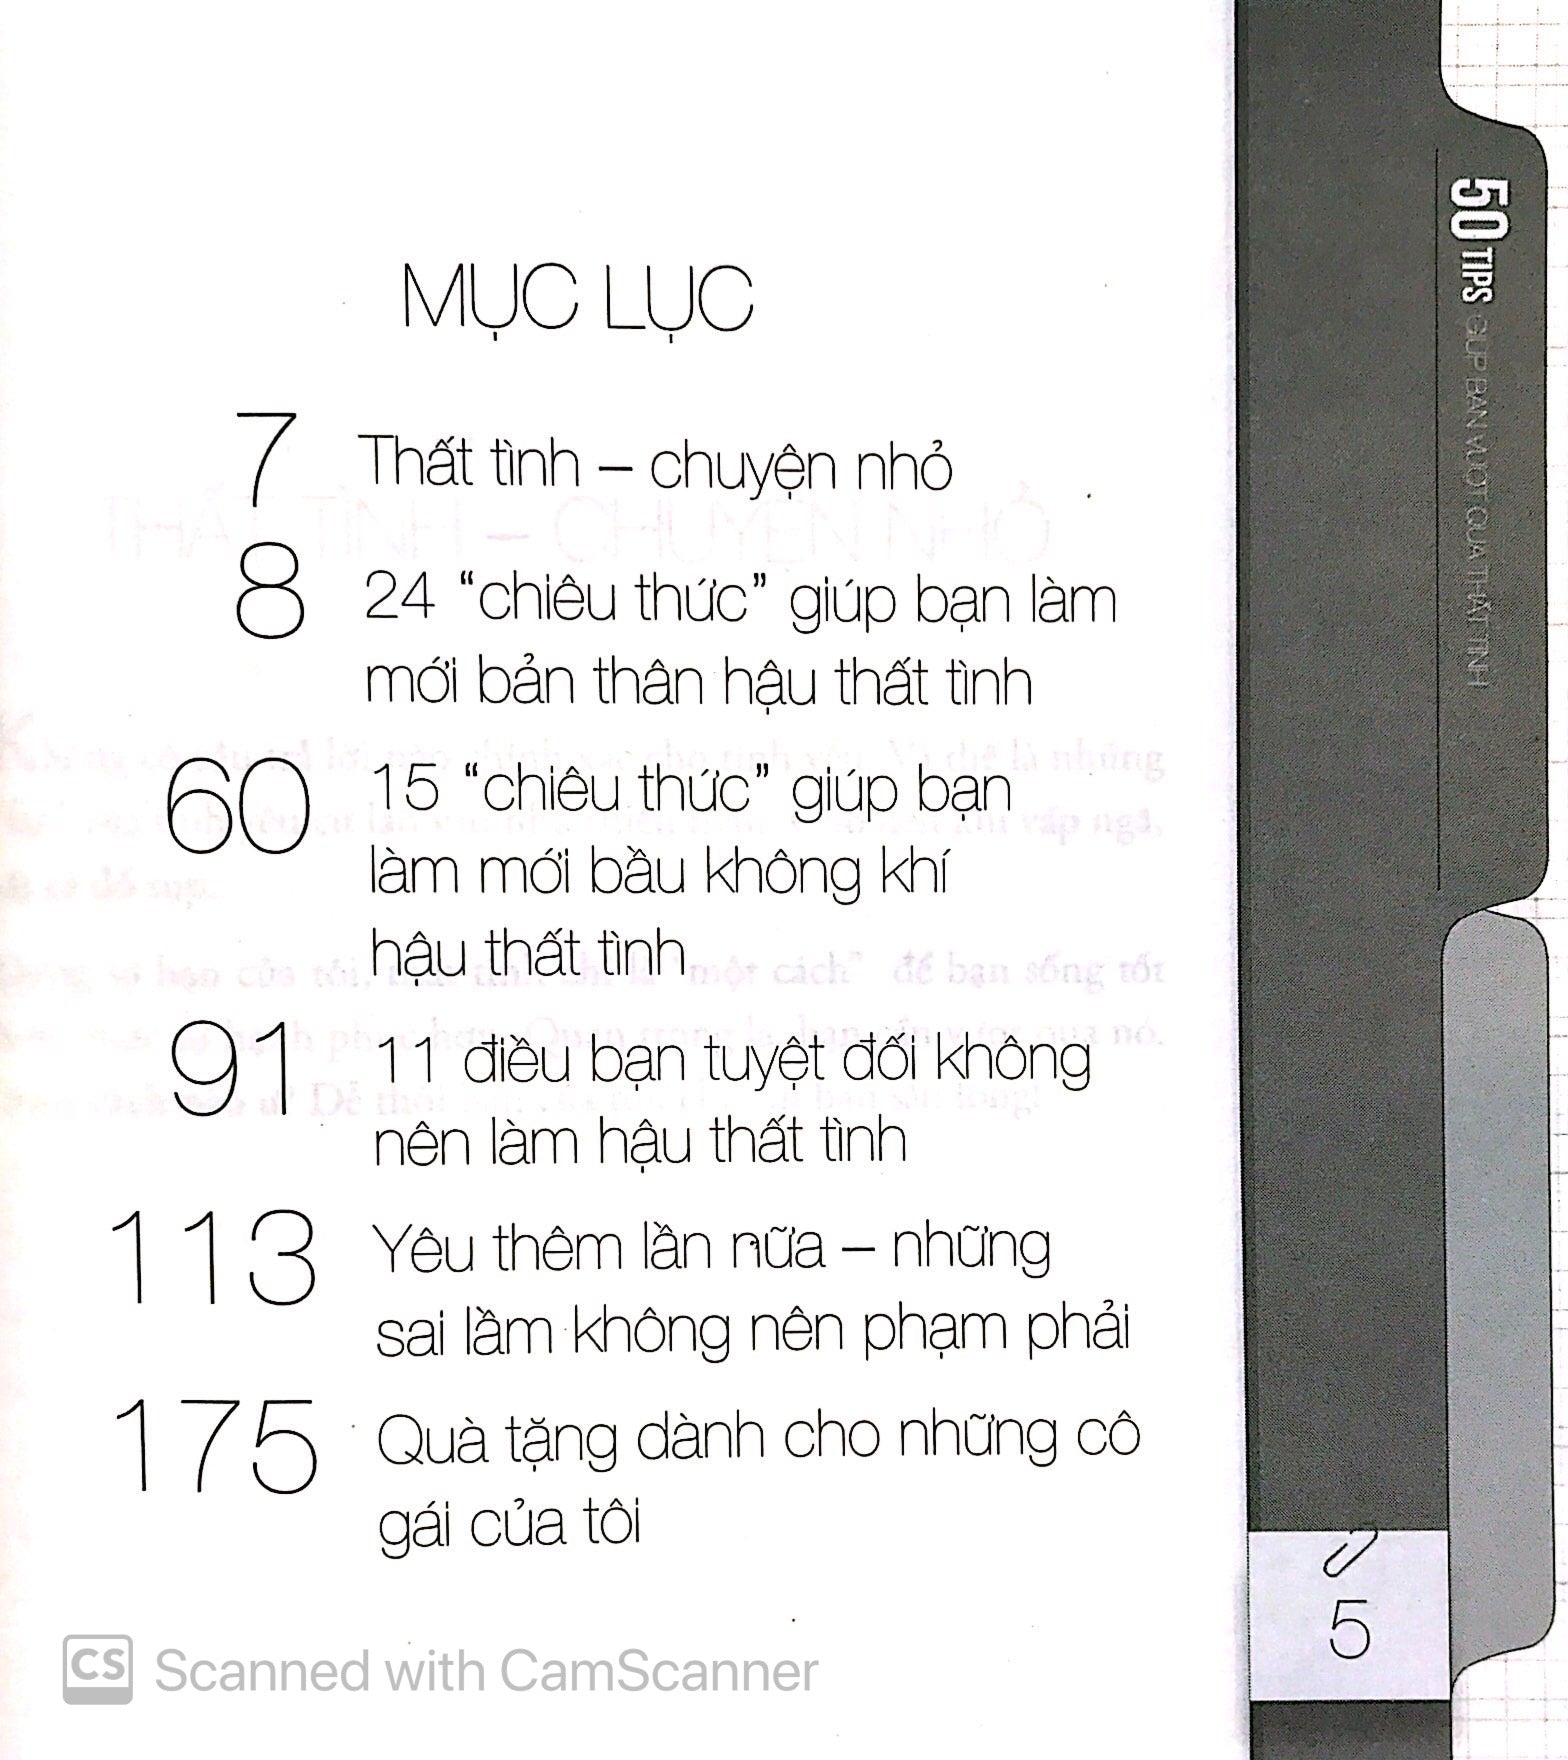 MỤC LỤC
7 Thất tình – chuyện nhỏ
8 24 “chiêu thức” giúp bạn làm
mới bản thân hậu thất tình
60 15 “chiêu thức” giúp bạn
làm mới bầu không khí
hậu thất tình
91 11 điều bạn tuyệt đối không
nên làm hậu thất tình
113 Yêu thêm lần nữa – những
sai lầm không nên phạm phải
175 Quà tặng dành cho những cô
gái của tôi
50 TIPS GIÚP BẠN VƯỢT QUA THẤT TÌNH
5
CS Scanned with CamScanner